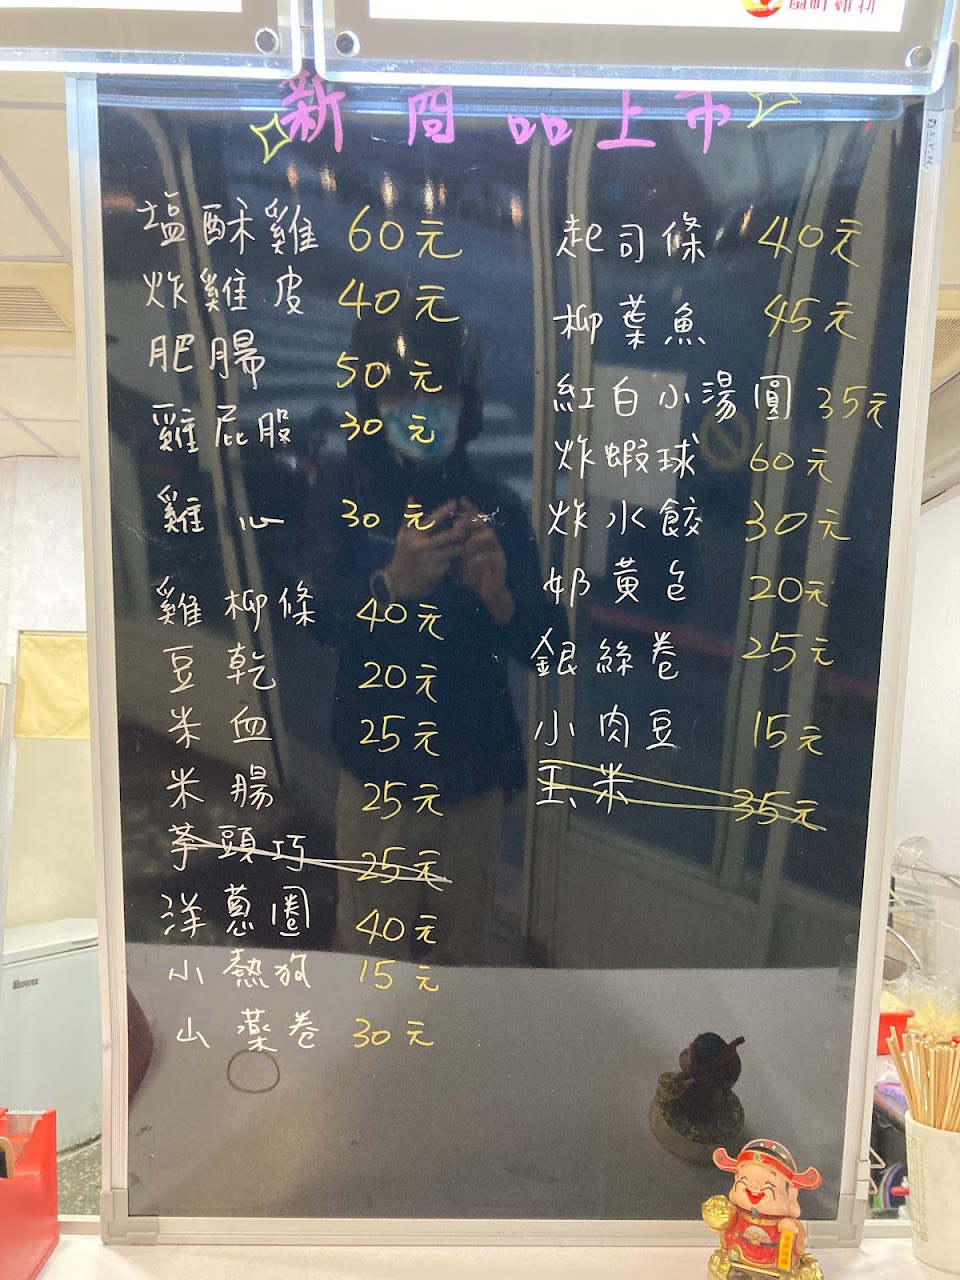 新品上市
塩酥雞 60元
炸雞皮 40元
肥腸 50元
雞屁股 30元
雞心 30元
雞柳條 40元
豆乾 20元
米血 25元
米腸 25元
芋頭巧 25元
洋蔥圈 40元
小熱狗 15元
山藥卷 30元
起司條 40元
柳葉魚 45元
紅白小湯圓 35元
炸蝦球 60元
炸水餃 30元
奶黃包 20元
銀絲卷 25元
小肉豆 15元
玉米 35元